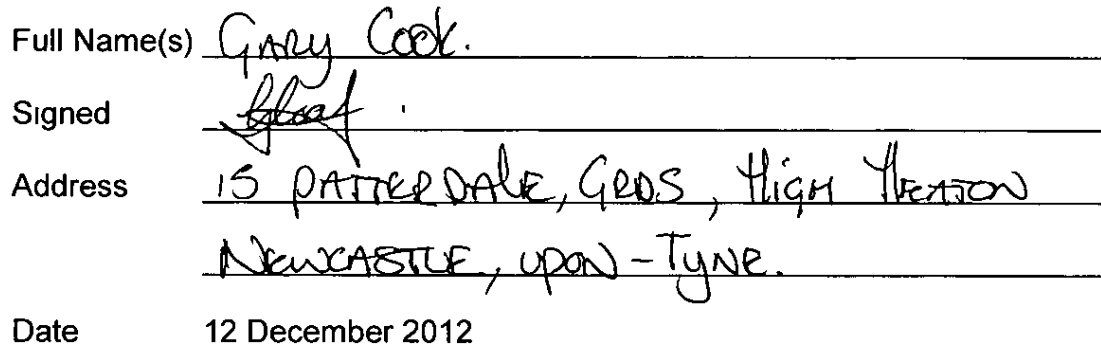 Full Name(s) GARY COOK.
Signed
Address 15 PATTERDALE, GRDS, HIGH HEATON
NEWCASTLE, UPON-TYNE.
Date 12 December 2012